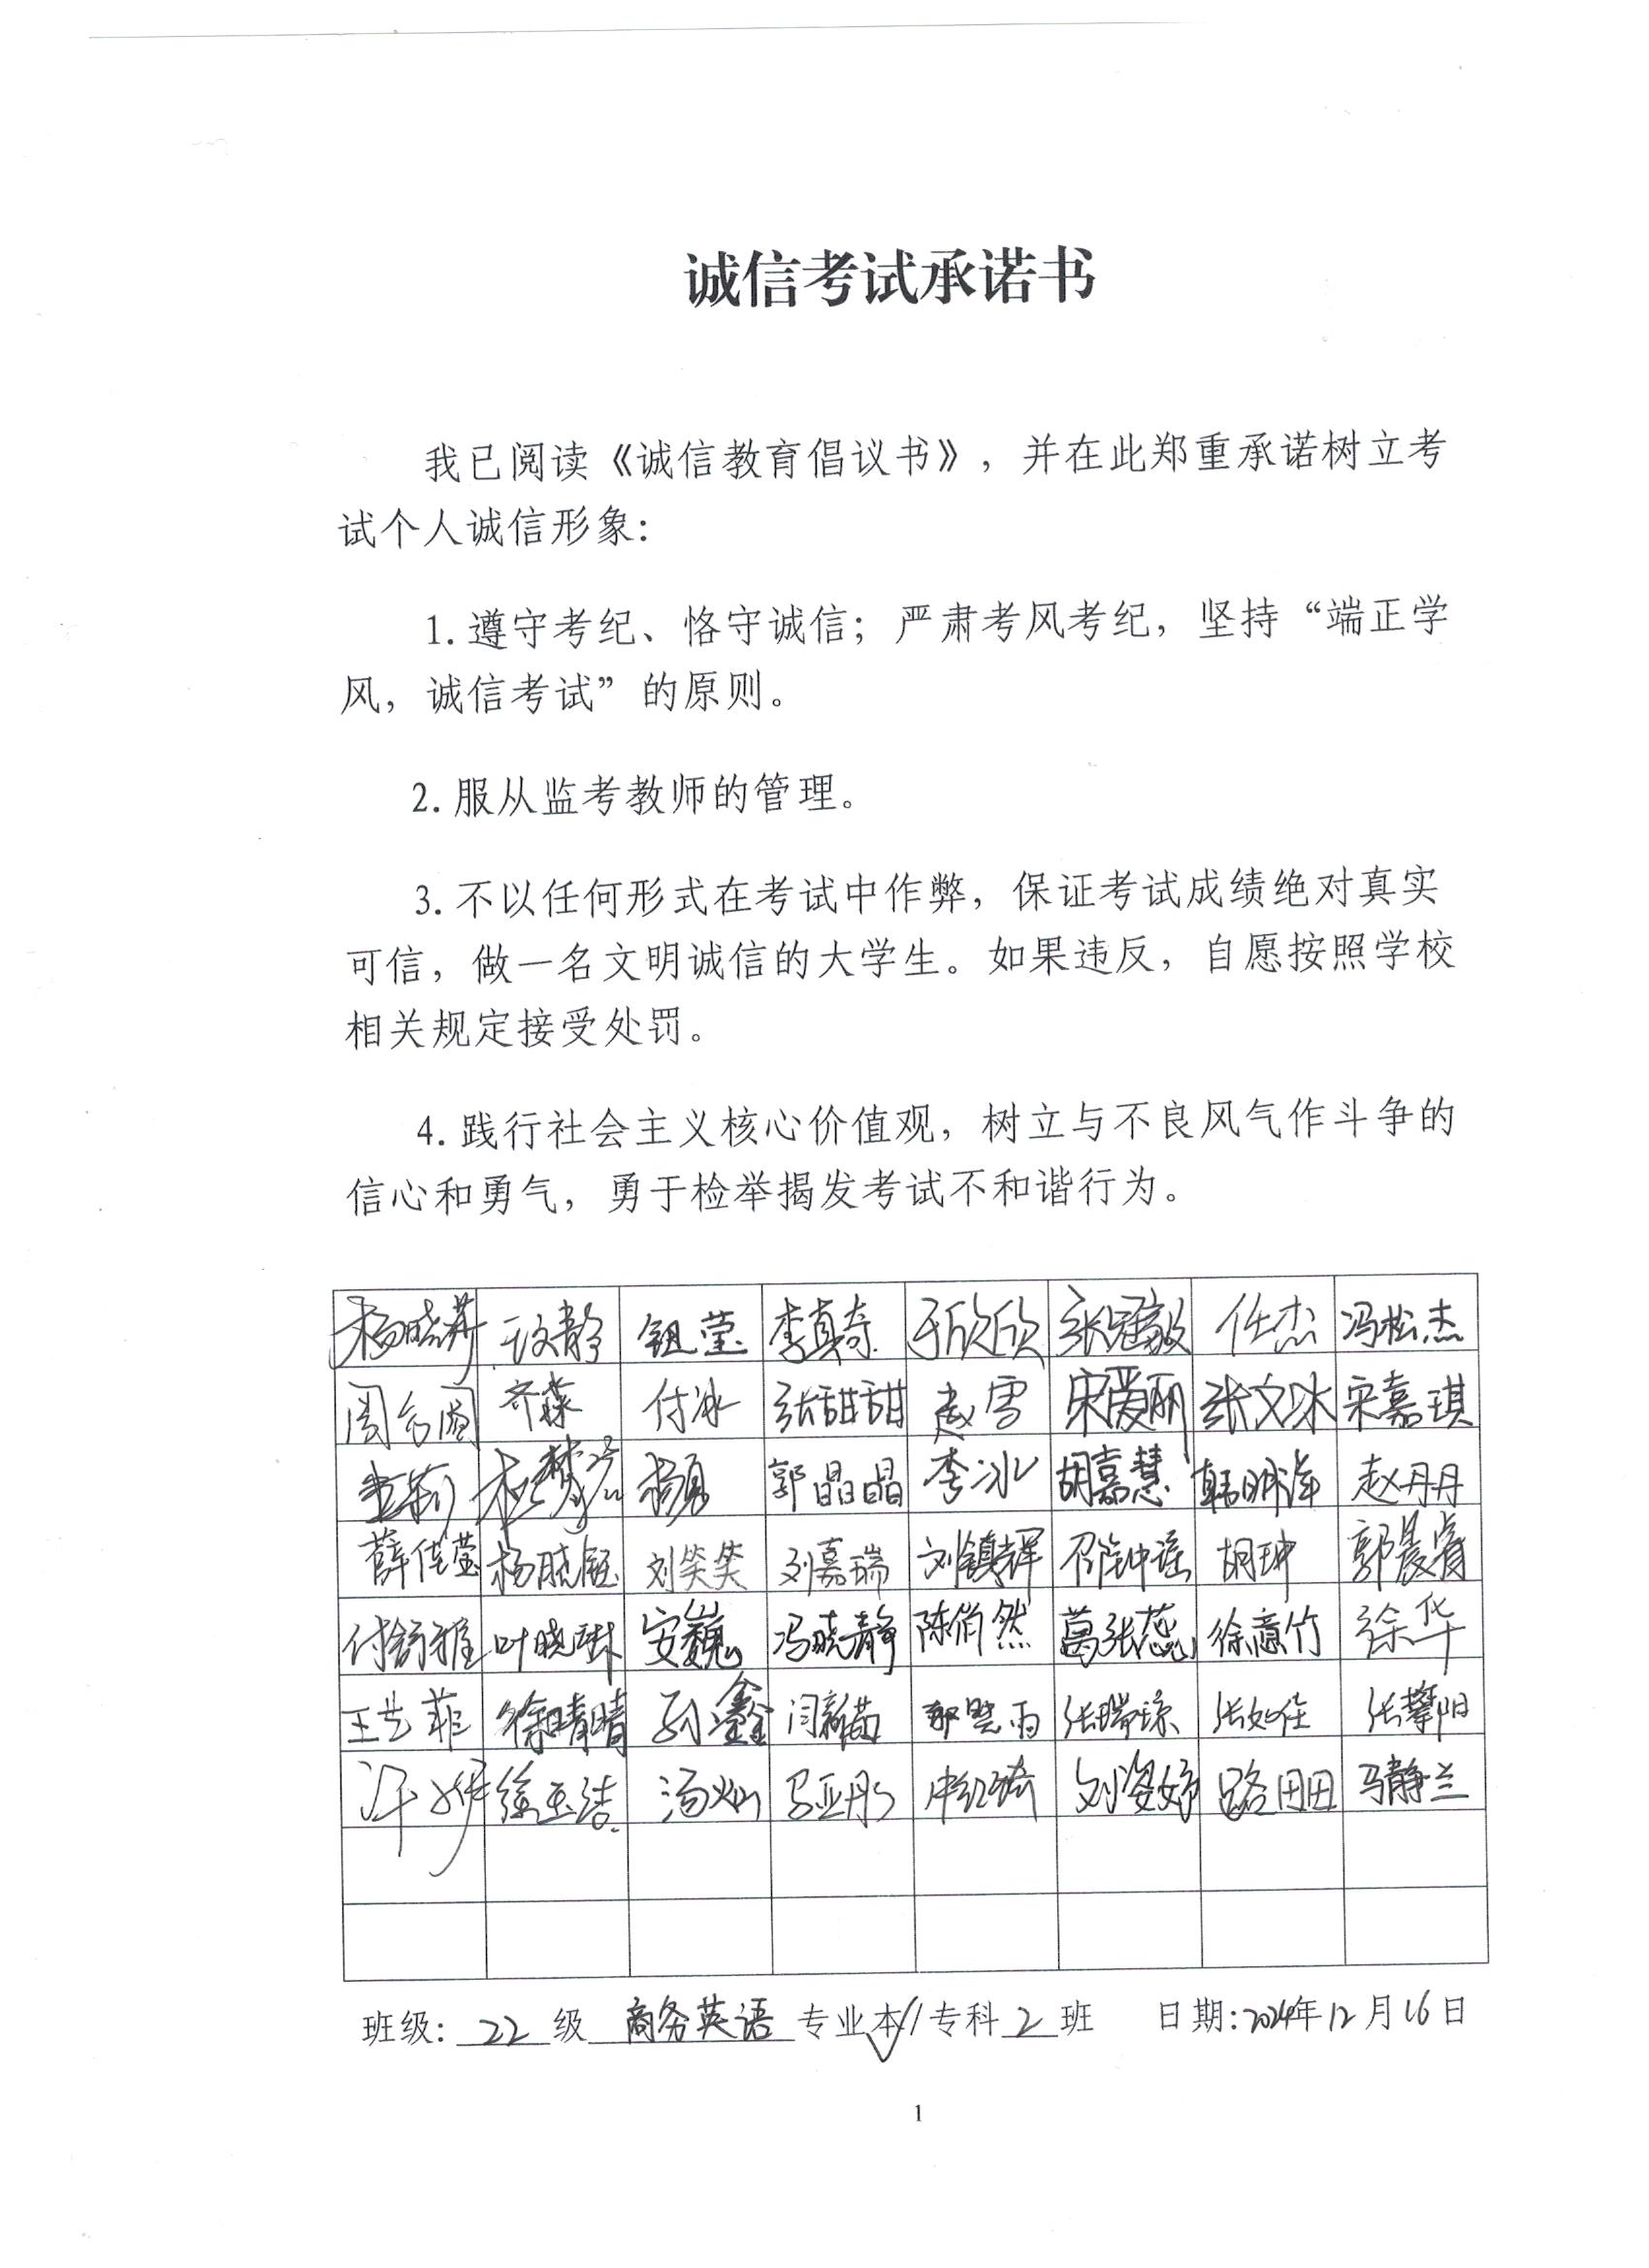 诚信考试承诺书
我已阅读《诚信教育倡议书》，并在此郑重承诺树立考
试个人诚信形象：
1.遵守考纪、恪守诚信；严肃考风考纪，坚持“端正学
风，诚信考试”的原则。
2.服从监考教师的管理。
3.不以任何形式在考试中作弊，保证考试成绩绝对真实
可信，做一名文明诚信的大学生。如果违反，自愿按照学校
相关规定接受处罚。
4.践行社会主义核心价值观，树立与不良风气作斗争的
信心和勇气，勇于检举揭发考试不和谐行为。
杨晓莉 钮莹 李真奇 于欣欣 张冠敏 任杰 冯松杰
齐森 付冰 张甜甜 赵雪 宋爱丽 张文冰 宋嘉琪
杜梦洁 杨勇 郭晶晶 李冰 胡嘉慧 赵丹丹
薛佳莹 杨晓钰 刘笑笑 刘嘉瑞 刘镇辉 胡珅 郭晨睿
付舒雅 叶晓琳 安巍 冯晓静 陈俏然 葛张蕊 徐意竹 徐华
王芸菲 徐晴晴 孙鑫 闫新苗 张瑞琼 张如佳 张攀阳
徐玉洁 汤灿 马亚彤 刘姿妤 路田田 马静兰
班级：22级 商务英语 专业本√/专科 2 班 日期：2024年12月16日
1